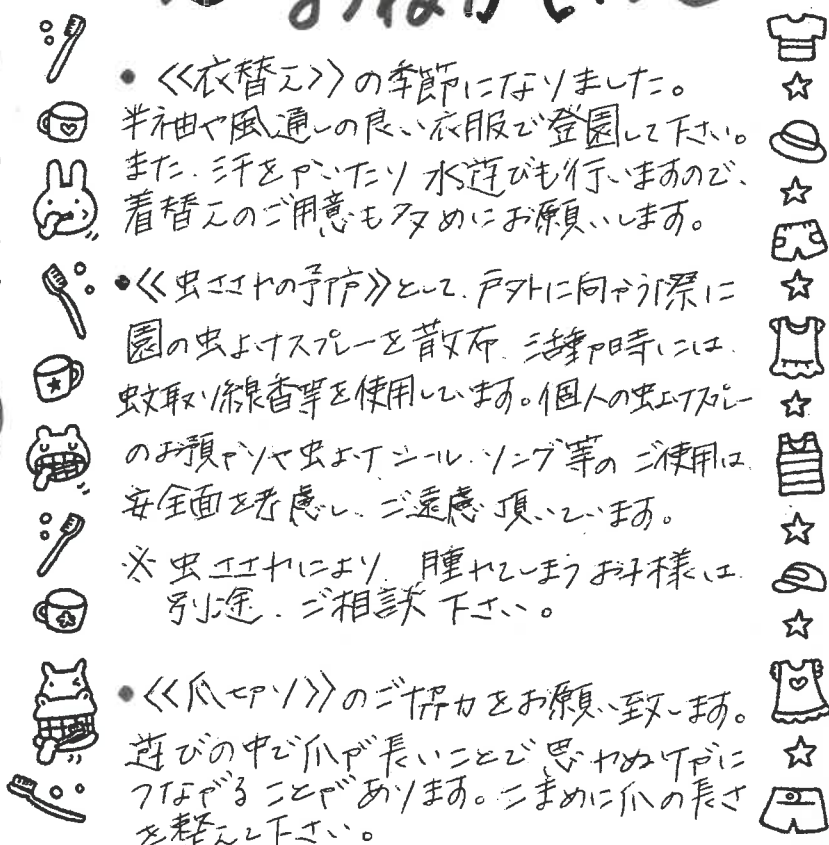 おねがい
・《衣替え》の季節になりました。
半袖や風通しの良い衣服で登園して下さい。
また、汗をかいたり水遊びも行いますので、
着替えのご用意も多めにお願いします。
・《虫さされの予防》として、戸外に向かう際に
園の虫よけスプレーを散布、活動時には、
蚊取り線香等を使用しています。個人の虫よけスプレー
のお預かりや虫よけシール、リング等のご使用は、
安全面を考慮し、ご遠慮頂いています。
※虫さされにより、腫れてしまうお子様は、
別途、ご相談下さい。
・《爪切り》のご協力をお願い致します。
遊びの中で爪が長いことで思わぬけがに
つながることがあります。こまめに爪の長さ
を整えて下さい。